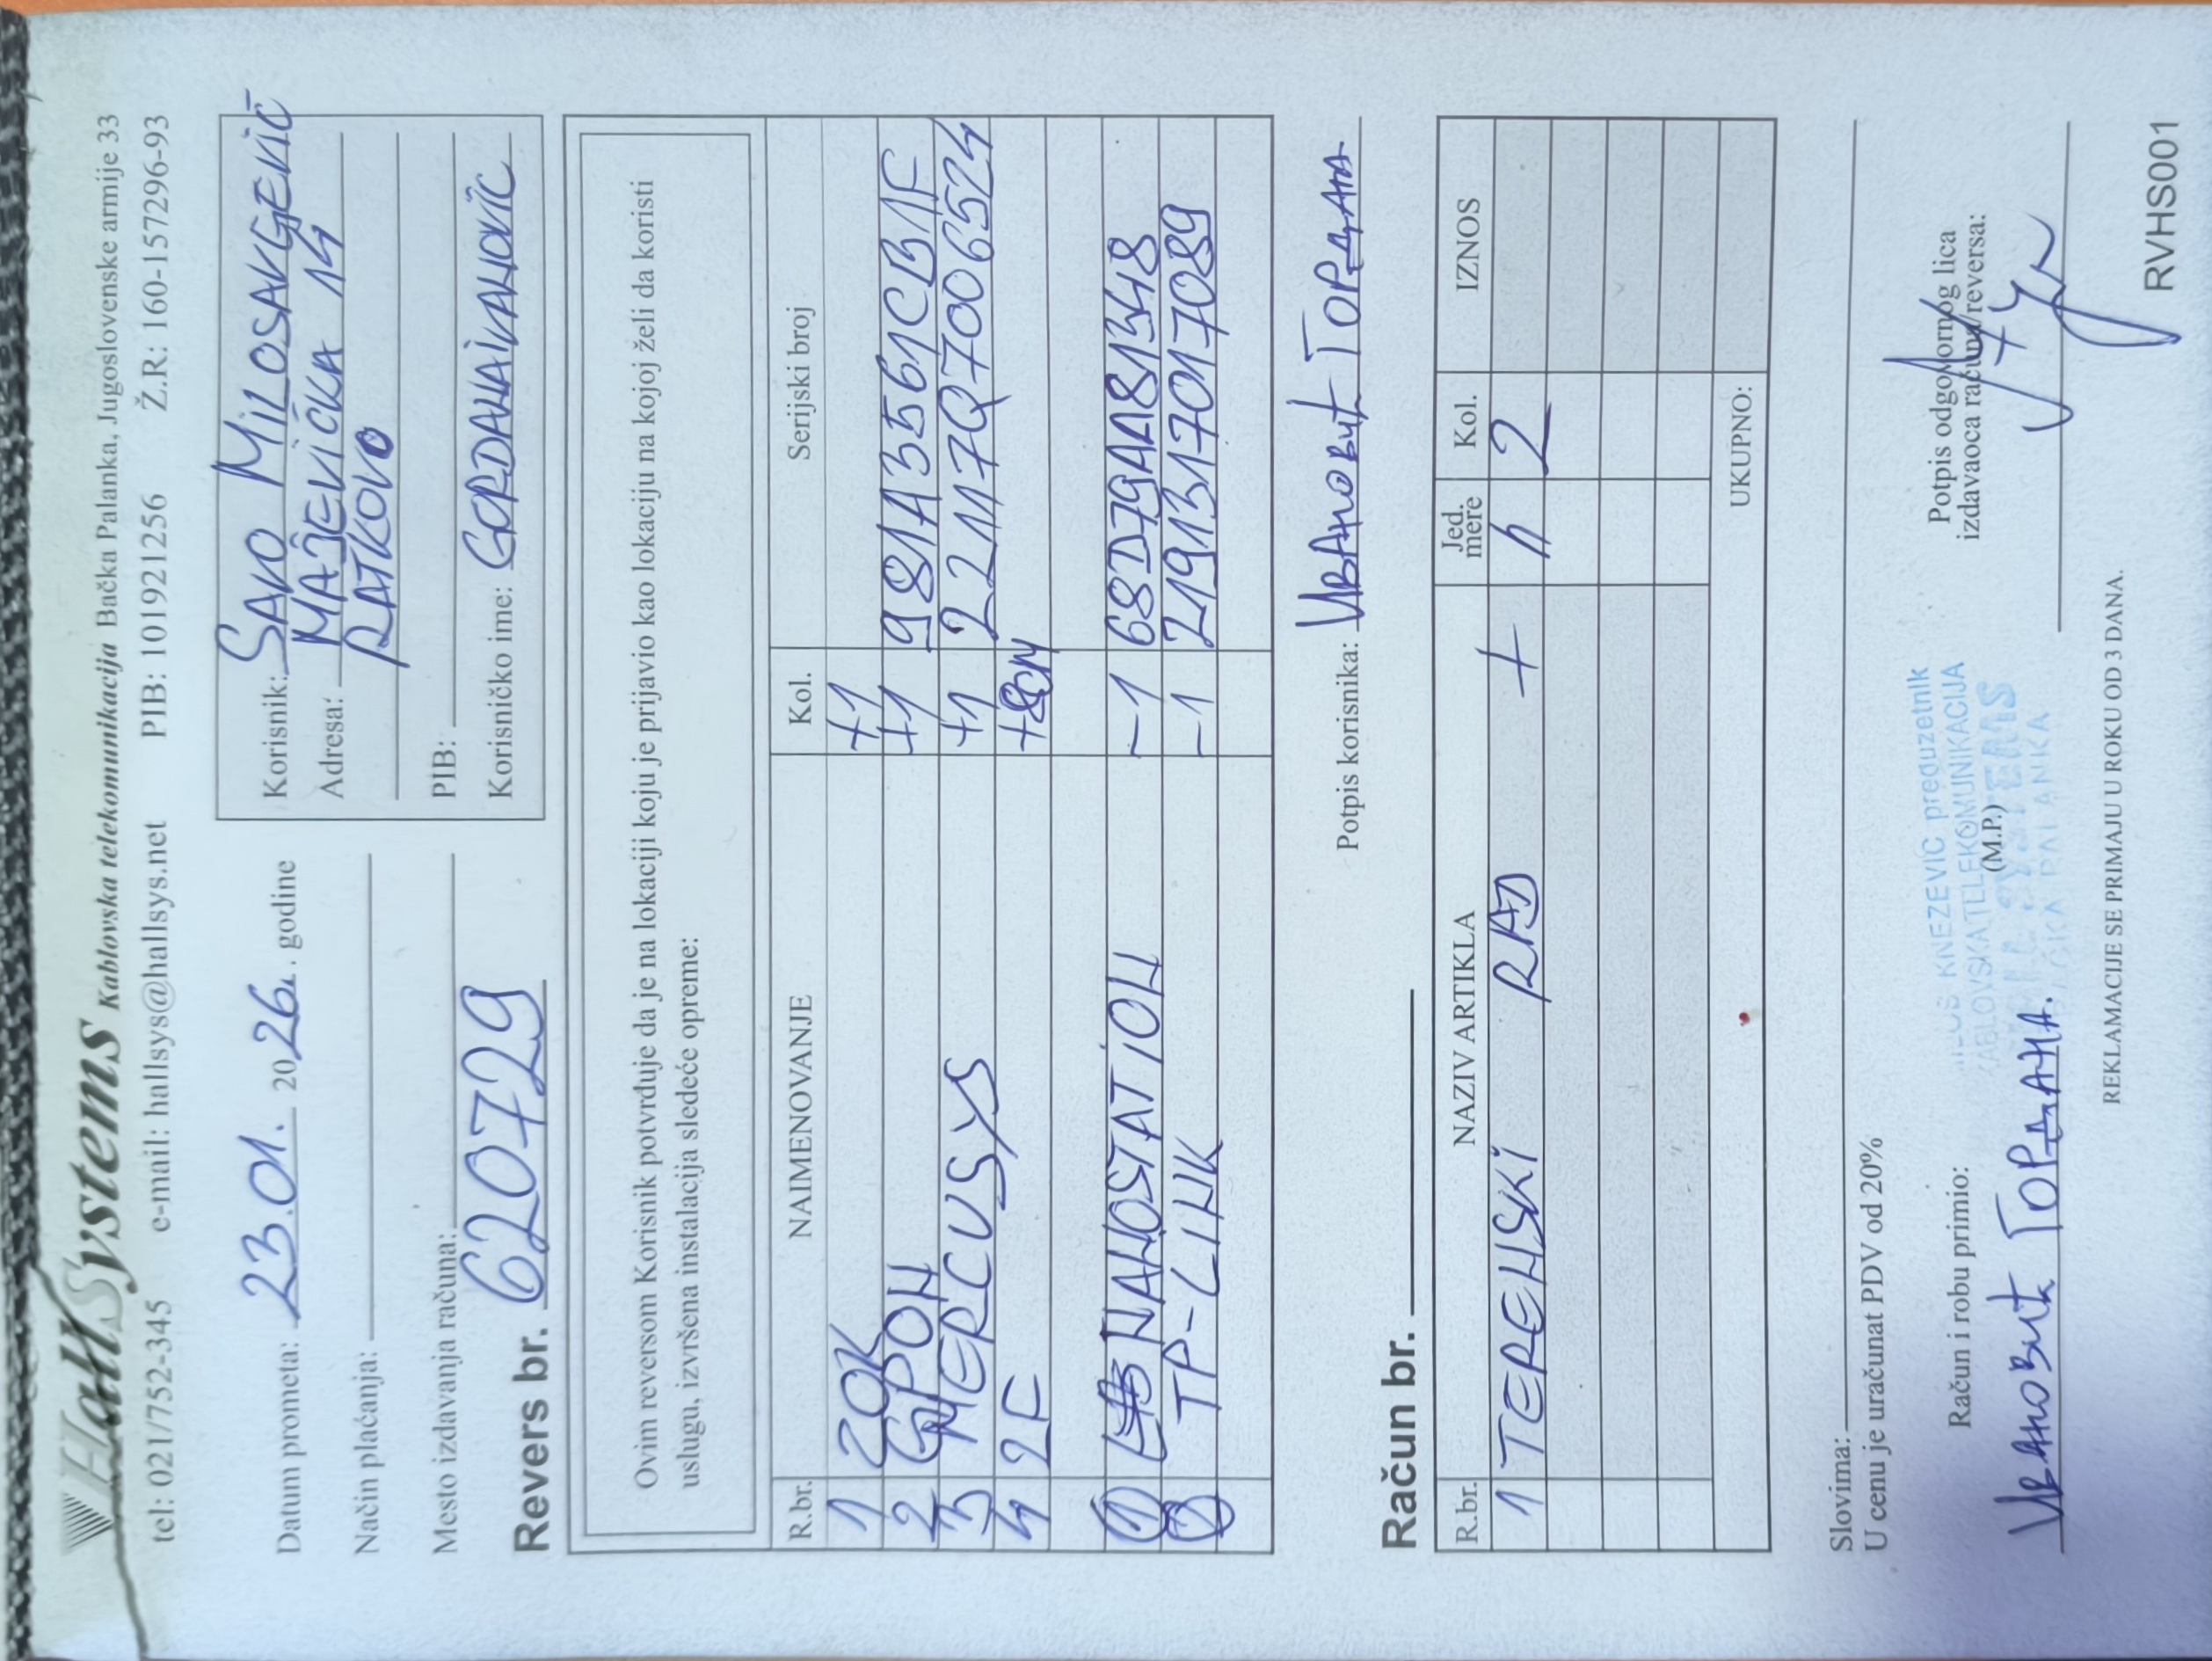 HallSystems Kablovska telekomunikacija Bačka Palanka, Jugoslovenske armije 33
tel: 021/752-345 e-mail: hallsys@hallsys.net PIB: 101921256 Ž.R: 160-157296-93
Datum prometa: 23.01. 2026. godine
Način plaćanja:
Mesto izdavanja računa:
Revers br. 620729
Korisnik: SAVO MILOSAVGEVIĆ
Adresa: MAJEVIČKA 14
RATKOVO
PIB:
Korisničko ime: GORDANAIVANOVIC
Ovim reversom Korisnik potvrđuje da je na lokaciji koju je prijavio kao lokaciju na kojoj želi da koristi
uslugu, izvršena instalacija sledeće opreme:
R.br. NAIMENOVANJE Kol. Serijski broj
1 ZOK +1
2 GPON +1 981A3561CB1F
3 MERCUSYS +1 22117Q7006524
4 2F +80M
1 NANOSTATION -1 68D79AA81348
2 TP-LINK -1 2191317017089
Potpis korisnika: Ивановић Гордана
Račun br.
R.br. NAZIV ARTIKLA Jed. mere Kol. IZNOS
1 TERENSKI RAD + h 2
UKUPNO:
Slovima:
U cenu je uračunat PDV od 20%
Račun i robu primio:
Ивановић Гордана.
KNEZEVIC preduzetnik
KABLOVSKA TELEKOMUNIKACIJA
(M.P.)
Potpis odgovornog lica
izdavaoca računa/reversa:
REKLAMACIJE SE PRIMAJU U ROKU OD 3 DANA.
RVHS001